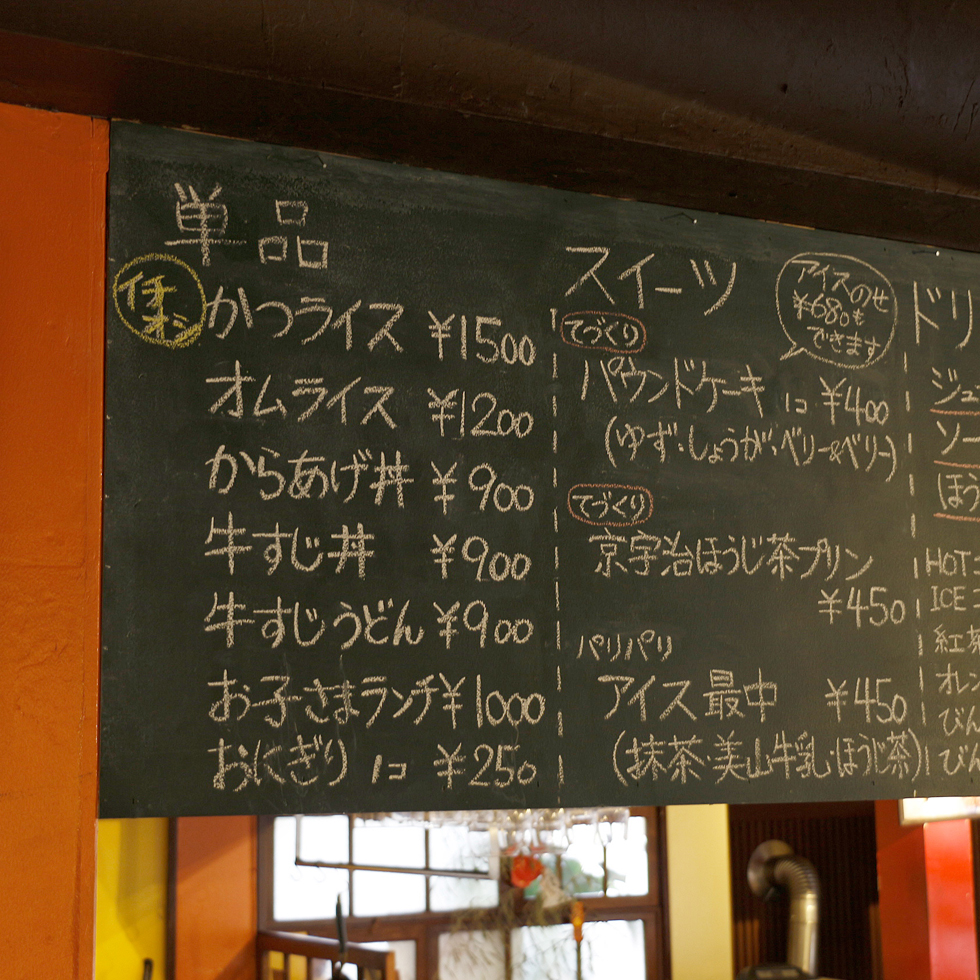 単品
イチオシ
かつライス ¥1500
オムライス ¥1200
からあげ丼 ¥900
牛すじ丼 ¥900
牛すじうどん ¥900
お子さまランチ ¥1000
おにぎり 1コ ¥250
スイーツ
アイスのせ
¥680も
できます
てづくり
パウンドケーキ 1コ ¥400
(ゆず・しょうが・ベリー&ベリー)
てづくり
京宇治ほうじ茶プリン
¥450
パリパリ
アイス最中 ¥450
(抹茶・美山牛乳・ほうじ茶)
ドリ
ジュ
ソー
(ほう
HOT
ICE
紅茶
オレン
びん
びん